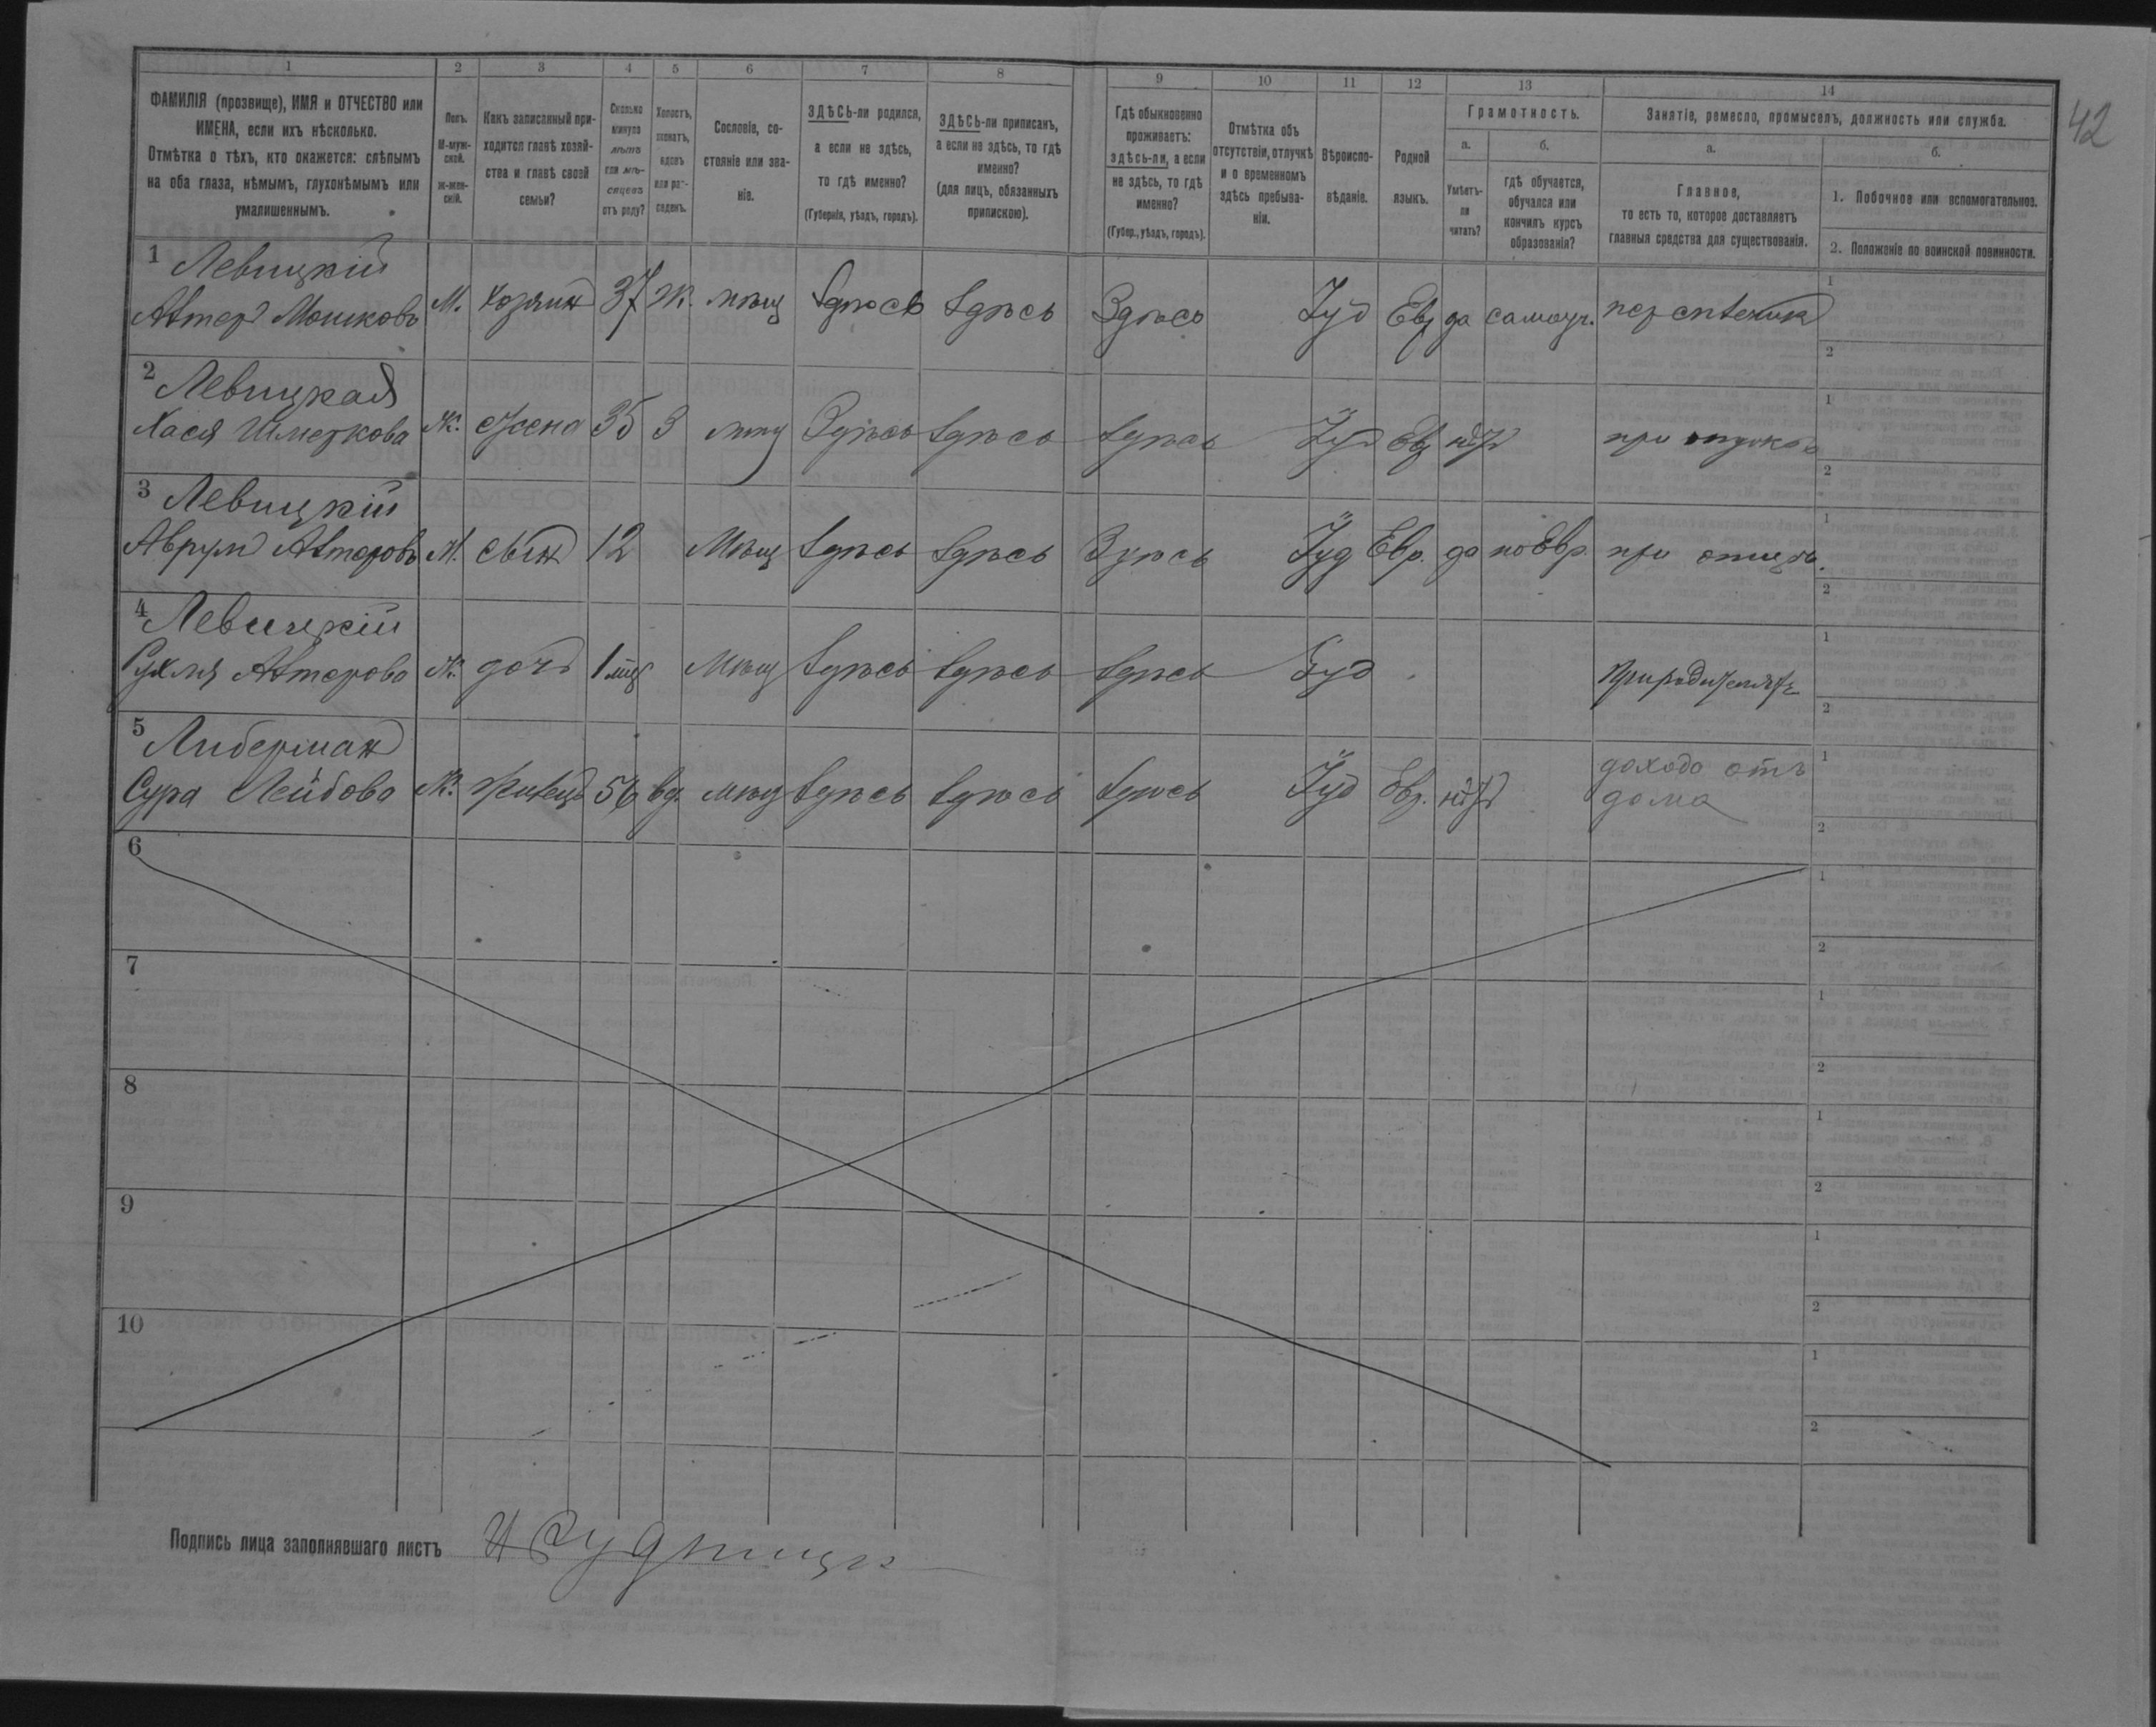 42
1 2 3 4 5 6 7 8 9 10 11 12 13 14
ФАМИЛІЯ (прозвище), ИМЯ и ОТЧЕСТВО или
ИМЕНА, если ихъ нѣсколько.
Отмѣтка о тѣхъ, кто окажется: слѣпымъ
на оба глаза, нѣмымъ, глухонѣмымъ или
умалишеннымъ.
Полъ.
М-муж-
ской.
ж-жен-
скій.
Какъ записанный при-
ходится главѣ хозяй-
ства и главѣ своей
семьи?
Сколько
минуло
лѣтъ
или мѣ-
сяцевъ
отъ роду?
Холостъ,
женатъ,
вдовъ
или раз-
веденъ.
Сословіе, со-
стояніе или зва-
ніе.
ЗДѢСЬ-ли родился,
а если не здѣсь,
то гдѣ именно?
(Губернія, уѣздъ, городъ).
ЗДѢСЬ-ли приписанъ,
а если не здѣсь, то гдѣ
именно?
(для лицъ, обязанныхъ
припискою).
Гдѣ обыкновенно
проживаетъ:
здѣсь-ли, а если
не здѣсь, то гдѣ
именно?
(Губер., уѣздъ, городъ).
Отмѣтка объ
отсутствіи, отлучкѣ
и о временномъ
здѣсь пребыва-
ніи.
Вѣроиспо-
вѣданіе.
Родной
языкъ.
Грамотность.
а.
Умѣетъ-
ли
читать?
б.
гдѣ обучается,
обучался или
кончилъ курсъ
образованія?
Занятіе, ремесло, промыселъ, должность или служба.
а.
Главное,
то есть то, которое доставляетъ
главныя средства для существованія.
б.
1. Побочное или вспомогательное.
2. Положеніе по воинской повинности.
1 Левицкій
Мошковъ М. хозяинъ 37 ж. мѣщ Здѣсь Здѣсь Здѣсь Іуд Евр да самоуч. 1
2
2 Левицкая
Хася Шмеркова Ж. жена 35 З мѣщ Здѣсь Здѣсь Здѣсь Іуд Евр нѣтъ при 1
2
3 Левицкій
Аврумъ М. сынъ 12 Мѣщ Здѣсь Здѣсь Здѣсь Іуд Евр. да по Евр. при отцѣ. 1
2
4 Левицкій
Рухля Ж. дочь 1 мѣс Мѣщ Здѣсь Здѣсь Здѣсь Іуд При родителяхъ 1
2
5 Либерман
Сура Лейбова Ж. жилецъ 56 вд. мѣщ Здѣсь Здѣсь Здѣсь Іуд Евр. нѣтъ доходъ отъ
дома 1
2
6 1
2
7 1
2
8 1
2
9 1
2
10 1
2
Подпись лица заполнявшаго листъ